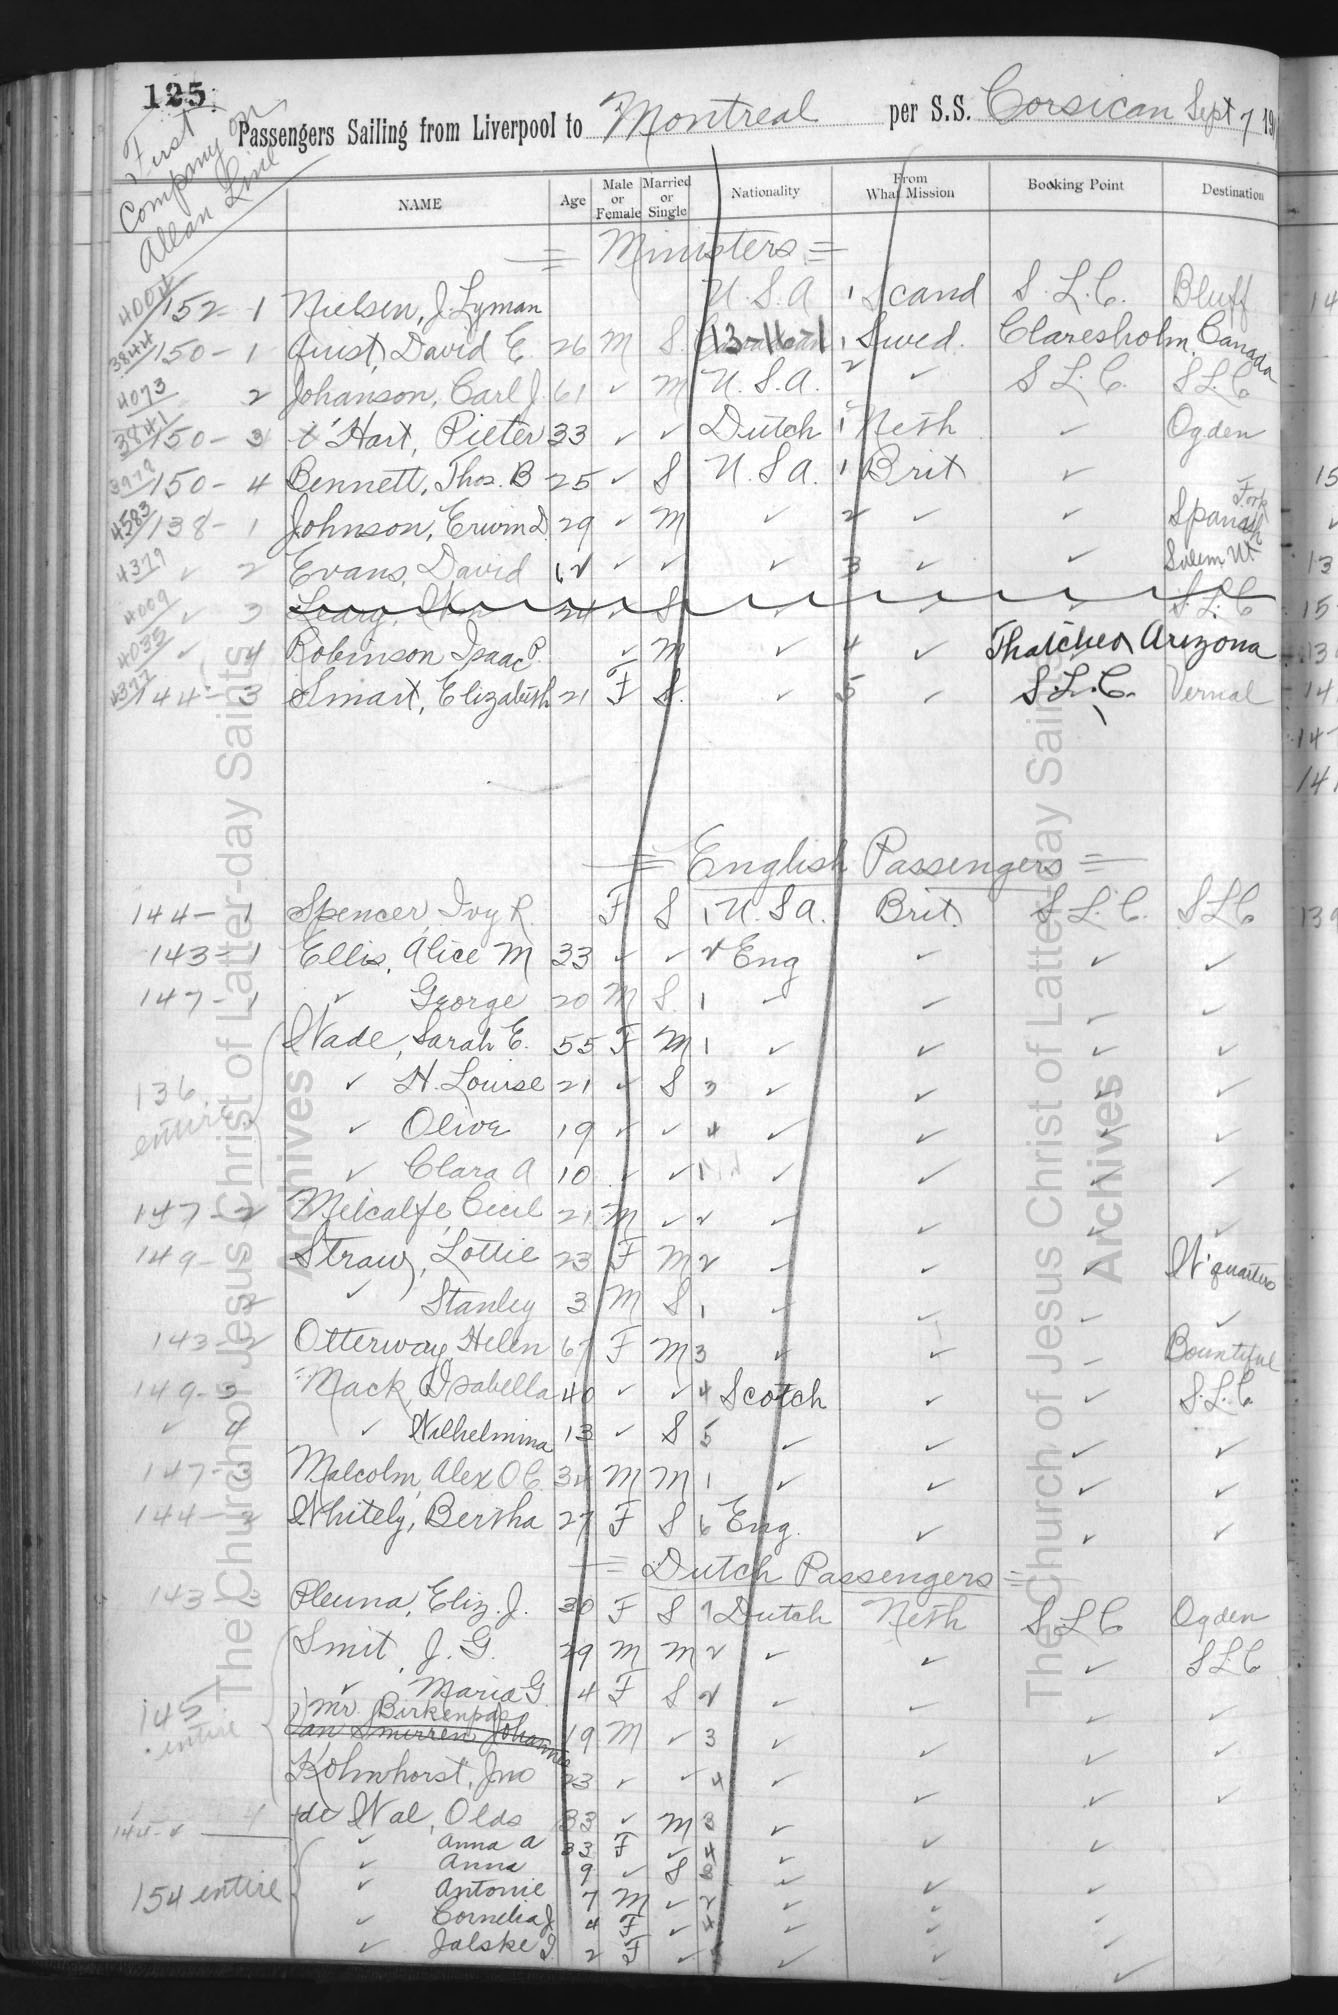 125.
First Company on Allan Line
Passengers Sailing from Liverpool to Montreal per S.S. Corsican Sept 7 19
NAME Age Male or Female Married or Single Nationality From What Mission Booking Point Destination
= Ministers =
152 - 1 Nielsen, J. Lyman U.S.A 1 Scand S.L.C. Bluff
3844 150 - 1 Quist, David E. 26 M S. 13-16-1 1 Swed. Claresholm, Canada
4073 2 Johanson, Carl J. 61 ✓ M U.S.A. 2 ✓ S L C. S L C
3841 150 - 3 t'Hart, Pieter 33 ✓ ✓ Dutch 1 Neth ✓ Ogden
3979 150 - 4 Bennett, Thos. B 25 ✓ S U.S.A. 1 Brit ✓
4583 138 - 1 Johnson, Erwin D. 29 ✓ M ✓ 2 ✓ ✓ Spanish Fork
4379 ✓ 2 Evans, David 62 ✓ ✓ ✓ 3 ✓ ✓ Salem Ut
4009 ✓ 3 24 ✓ S ✓ ✓ S.L.C
4035 ✓ 4 Robinson Isaac P. ✓ M ✓ 4 ✓ Thatcher Arizona
4377 144 - 3 Smart, Elizabeth 21 F S. ✓ 5 ✓ S.L.C. Vernal
= English Passengers =
144 - 1 Spencer, Ivy R. F S 1 U.S.A. Brit. S L. C. S L C
143 - 1 Ellis, Alice M 33 ✓ ✓ 2 Eng ✓ ✓ ✓
147 - 1 ✓ George 20 M S. 1 ✓ ✓ ✓ ✓
Wade, Sarah E. 55 F M 1 ✓ ✓ ✓ ✓
136. entire ✓ H. Louise 21 ✓ S 3 ✓ ✓ ✓ ✓
✓ Olive 19 ✓ ✓ 4 ✓ ✓ ✓ ✓
✓ Clara A 10 ✓ ✓ 1 ✓ ✓ ✓ ✓
147 - 2 Metcalfe, Cecil 21 M ✓ 2 ✓ ✓ ✓ ✓
149 - Straw, Lottie 23 F M 2 ✓ ✓ ✓ W'quarters
2 ✓ Stanley 3 M S 1 ✓ ✓ ✓ ✓
143 - 2 Otterway, Helen 67 F M 3 ✓ ✓ ✓ Bountiful
149 - 3 Mack, Isabella 40 ✓ ✓ 4 Scotch ✓ ✓ S.L.C.
✓ 4 ✓ Wilhelmina 13 ✓ S 5 ✓ ✓ ✓ ✓
147 - 3 Malcolm, Alex O C 34 M M 1 ✓ ✓ ✓ ✓
144 - 2 Whitely, Bertha 27 F S 6 Eng. ✓ ✓ ✓
= Dutch Passengers =
143 - 3 Pleuna, Eliz. J. 30 F S 7 Dutch Neth S.L.C Ogden
Smit, J. G. 29 M M 2 ✓ ✓ ✓ S L C
145 entire ✓ Maria G. 4 F S 2 ✓ ✓ ✓ ✓
Mr. Birkenpas
van Smirren Johannes 19 M ✓ 3 ✓ ✓ ✓ ✓
Kohnhorst, Jno 23 ✓ ✓ 4 ✓ ✓ ✓ ✓
144 - ✓ 4 de Wal, Olds 33 ✓ M 3 ✓ ✓ ✓
✓ Anna A 33 F ✓ 4 ✓
✓ Anna 9 ✓ S 3 ✓ ✓ ✓
154 entire ✓ Antonie 7 M ✓ 2 ✓ ✓
✓ Cornelia J. 4 F ✓ 4 ✓ ✓ ✓
✓ Jalske J. 2 F ✓ ✓ ✓ ✓
The Church of Jesus Christ of Latter-day Saints
Archives
The Church of Jesus Christ of Latter-day Saints
Archives